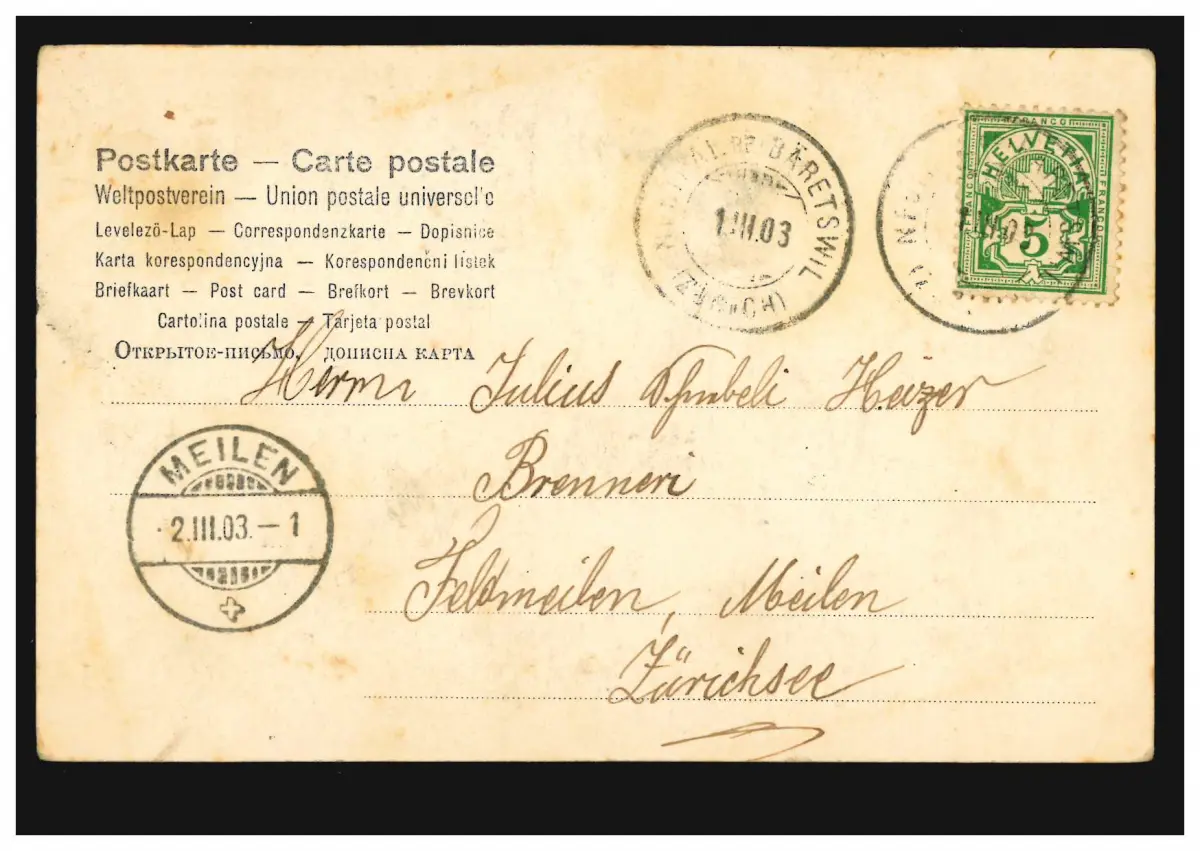 Postkarte — Carte postale
Weltpostverein — Union postale universelle
Levelező-Lap — Correspondenzkarte — Dopisnice
Karta korespondencyjna — Korespondenční lístek
Briefkaart — Post card — Brefkort — Brevkort
Cartolina postale — Tarjeta postal
Открытое-письмо, дописна карта
BEI BÄRETSWIL
1.III.03
(ZÜRICH)
FRANCO
HELVETIA
FRANCO FRANCO
5
1.III.03
Herrn Julius Heizer
Brenneri
MEILEN
2.III.03.—1
Feldmeilen, Meilen
Zürichsee